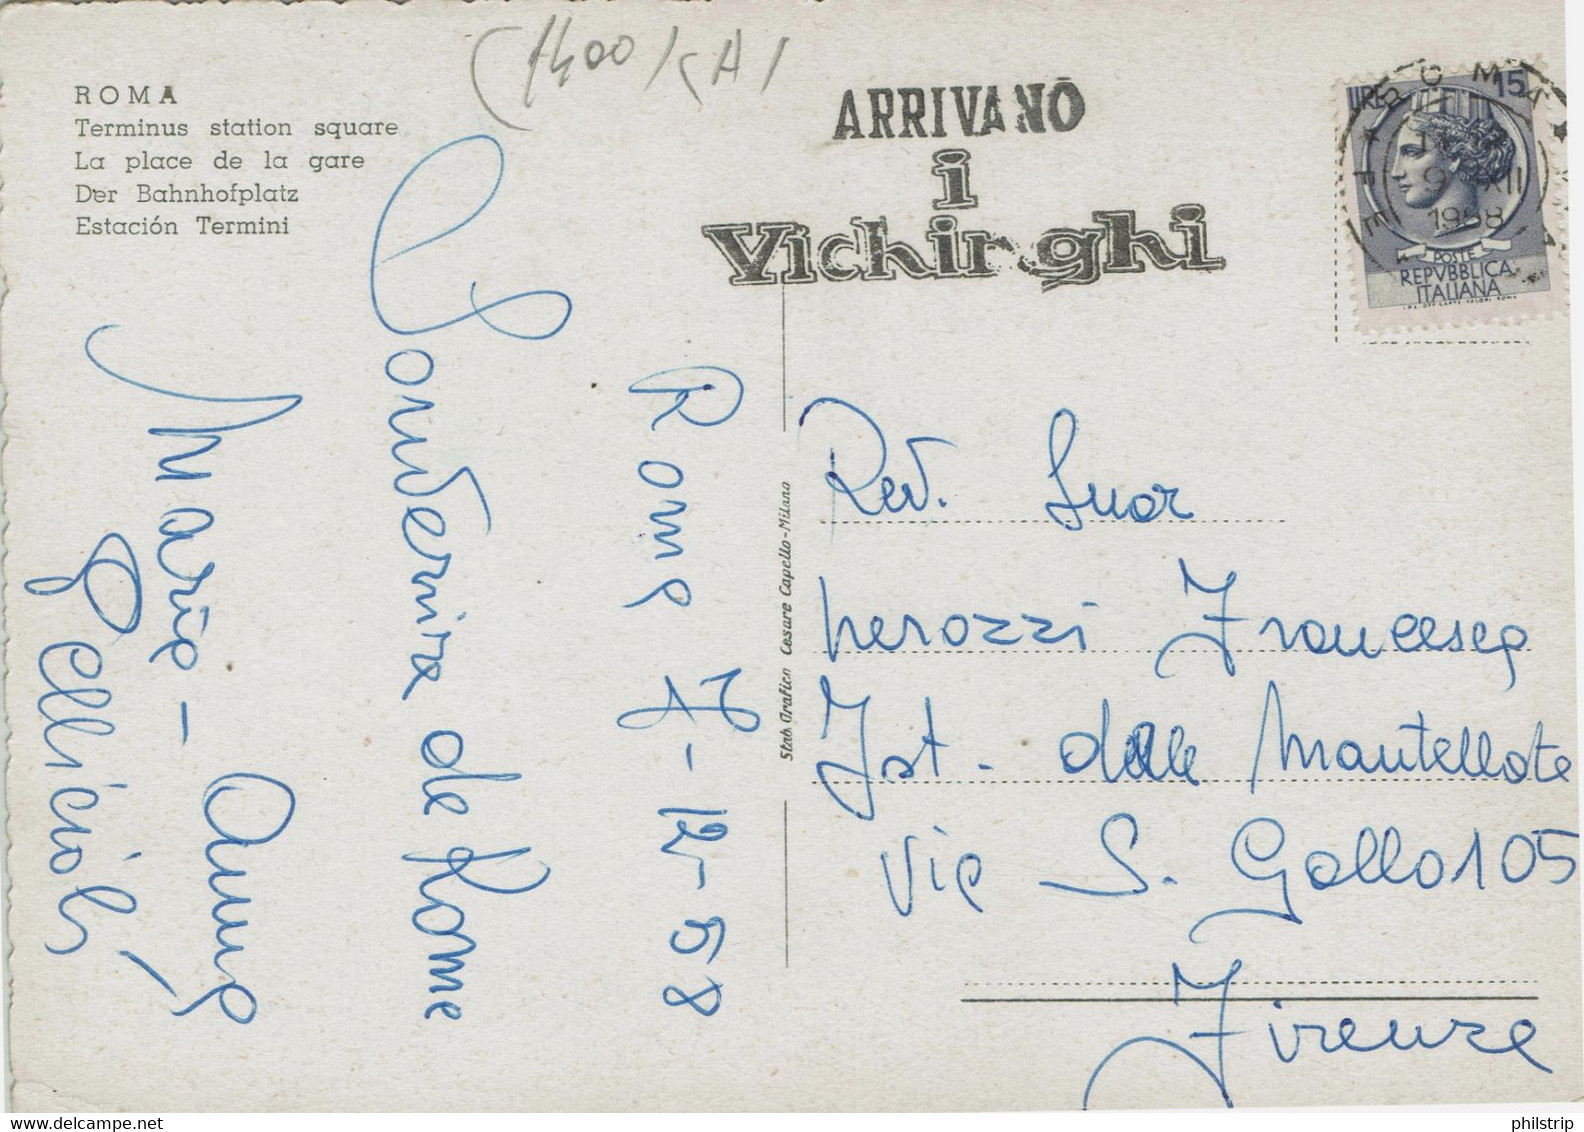 (1400/CA/
ROMA
Terminus station square
La place de la gare
Der Bahnhofplatz
Estación Termini
ARRIVANO
i
Vichinghi
LIRE 15
ROMA
9 XII
1958
POSTE
REPVBBLICA
ITALIANA
Roma 7-12-58
Souvenire de Rome
Maria-Anna
Pellicioli
Stab. Grafico Cesare Capello - Milano
Rev. Suor
Nerozzi Francesca
Ist. delle Mantellate
Via S. Gallo 105
Firenze
philstrip
www.delcampe.net